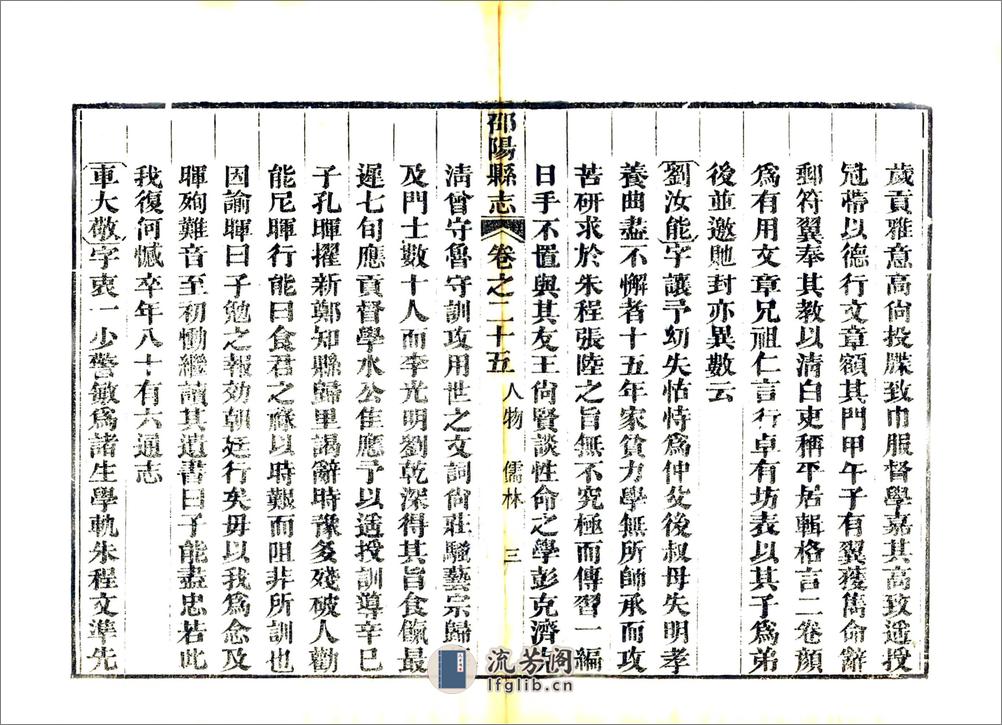 歲貢雅意高尚投牒致巾服督學嘉其高致遥授
冠帶以德行文章額其門甲午子有翼獲雋命辭
郵符翼奉其教以清白吏稱平居輯格言二卷顏
為有用文章兄祖仁言行卓有坊表以其子為弟
後並邀貤封亦異數云
劉汝能字讓予幼失怙恃為仲父後叔母失明孝
養曲盡不懈者十五年家貧力學無所師承而攻
苦研求於朱程張陸之旨無不究極而傳習一編
日手不置與其友王尚賢談性命之學彭克濟
邵陽縣志 卷之二十五 人物 儒林 三
清曾守魯守訓攻用世之文詞尚莊騷藝宗歸
及門士數十人而李光明劉乾深得其旨食餼最
遲七旬應貢督學水公佳應予以遥授訓導辛巳
子孔暉擢新鄭知縣歸里謁辭時豫多殘破人勸
能尼暉行能曰食君之祿以時艱而阻非所訓也
因諭暉曰子勉之報効朝廷行矣毋以我為念及
暉殉難音至初慟繼讀其遺書曰子能盡忠若此
我復何憾卒年八十有六通志
車大敬字衷一少警敏為諸生學軌朱程文準先
流芳阁
lfglib.cn